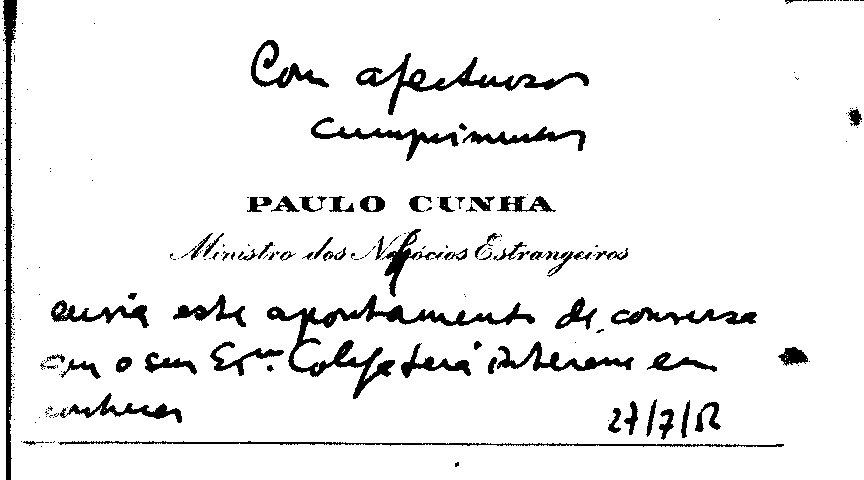 Com afectuosos
cumprimentos
PAULO CUNHA
Ministro dos Negócios Estrangeiros
envia este apontamento de conversa
que o seu Exmº. Colega terá interesse em
conhecer 27/7/52